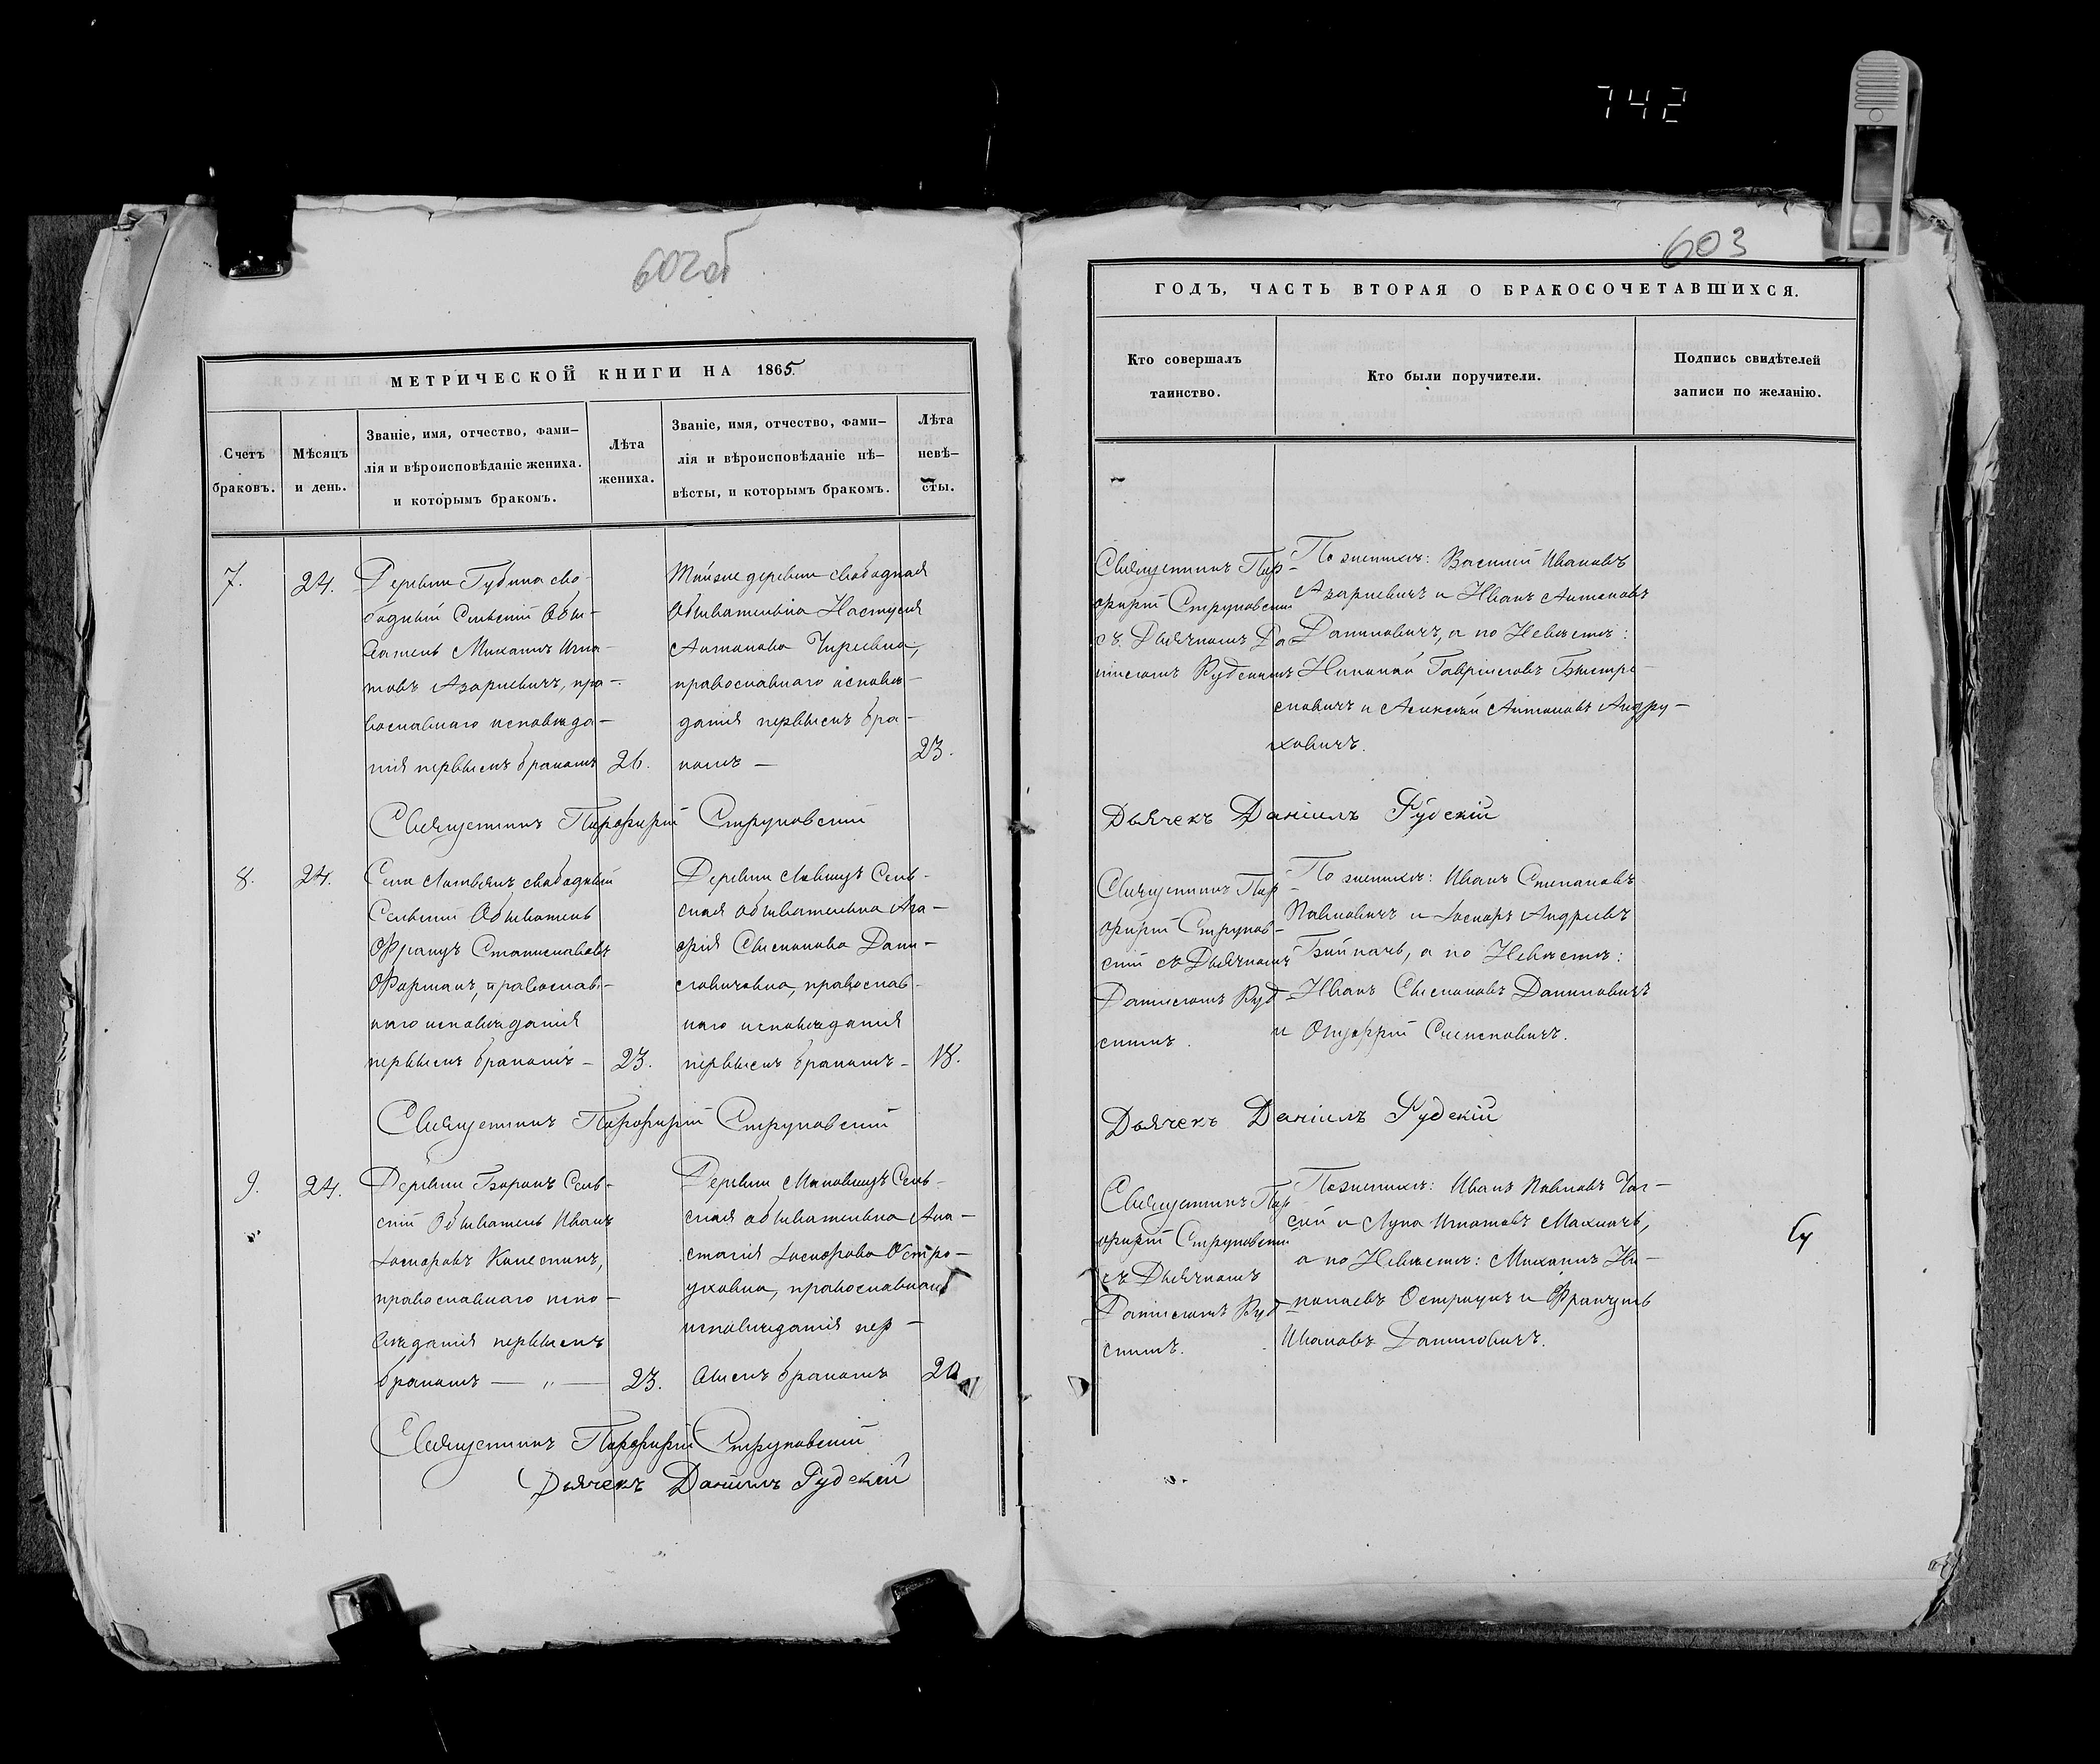 742
602об
МЕТРИЧЕСКОЙ КНИГИ НА 1865
Счетъ
браковъ.
Мѣсяцъ
и день.
Званіе, имя, отчество, фами-
лія и вѣроисповѣданіе жениха.
и которымъ бракомъ.
Лѣта
жениха.
Званіе, имя, отчество, фами-
лія и вѣроисповѣданіе нѣ-
вѣсты, и которымъ бракомъ.
Лѣта
невѣ-
сты.
7.
24.
Деревни Губина сво-
бодный Сельскій Обы-
ватель Михаилъ Игна-
товъ Азаркевичъ, пра-
вославнаго исповѣда-
нія первымъ бракомъ
26.
Тойже деревни свободная
Обывательна Настусія
Антонова
православнаго исповѣ-
данія первымъ бра-
комъ —
23.
Священникъ Порфирій Струковскій
8.
24.
Села свободный
Сельскій Обыватель
Францъ Станиславовъ
Фарманъ, православ-
наго исповѣданія
первымъ бракомъ —
23.
Деревни Сель-
ская обывательна Ага-
фія Сымонова Дани-
ловичовна, православ-
наго исповѣданія
первымъ бракомъ —
18.
Священникъ Порфирій Струковскій
9.
24.
Деревни Борокъ Сель-
скій Обыватель Иванъ
православнаго испо-
вѣданія первымъ
бракомъ — „ —
23.
Деревни Сель-
ская обывательна Ана-
стасія Остро-
уховна, православнаго
исповѣданія пер-
вымъ бракомъ
20
Священникъ Порфирій Струковскій
Дьячекъ Даніилъ Рудскій
603
ГОДЪ, ЧАСТЬ ВТОРАЯ О БРАКОСОЧЕТАВШИХСЯ.
Кто совершалъ
таинство.
Кто были поручители.
Подпись свидѣтелей
записи по желанію.
Священникъ Пор-
фирій Струковскій
съ Дьячкомъ Да-
ніиломъ Рудскимъ
По женихѣ: Василій Ивановъ
Азаркевичъ и Иванъ Антоновъ
Даниловичъ, а по Невѣстѣ:
Николай Гавріиловъ
и Алексѣй Антоновъ Андру-
ховичъ.
Дьячекъ Даніилъ Рудскій
Священникъ Пор-
фирій Струков-
скій съ Дьячкомъ
Даніиломъ Руд-
скимъ.
По женихѣ: Иванъ Степановъ
и Андреевъ
а по Невѣстѣ:
Иванъ Сымоновъ Даниловичъ
и
Дьячекъ Даніилъ Рудскій
Священникъ Пор-
фирій Струковскій
съ Дьячкомъ
Даніиломъ Руд-
скимъ.
По женихѣ: Иванъ
и Лука Игнатовъ Махначь,
а по Невѣстѣ: Михаилъ Ни-
колаевъ Остроухъ и Францъ
Ивановъ Даниловичъ.